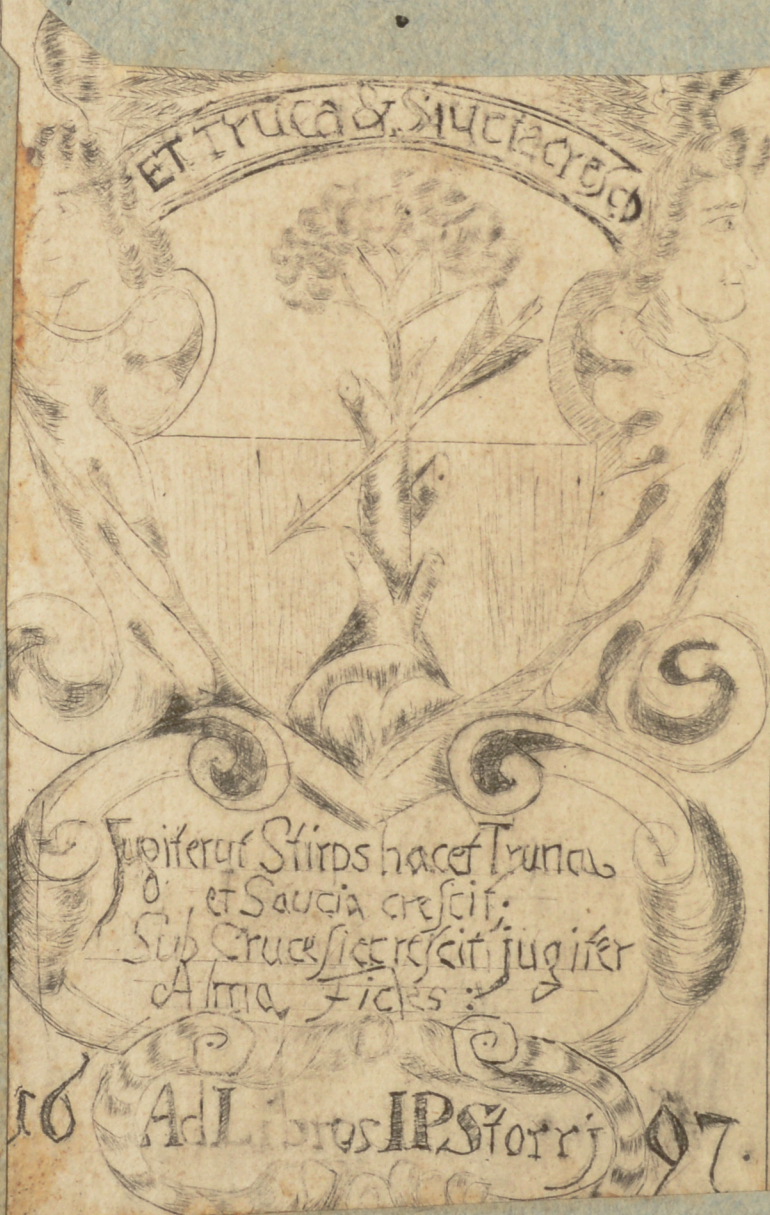 ET Truca & Siucia creſco
Jugiter ut Stirps hacet Trunca
et Saucia creſcit;
Sub Cruce ſic creſcit jugiter
Alma Fides:
16 Ad Libros IP Storrj 97.